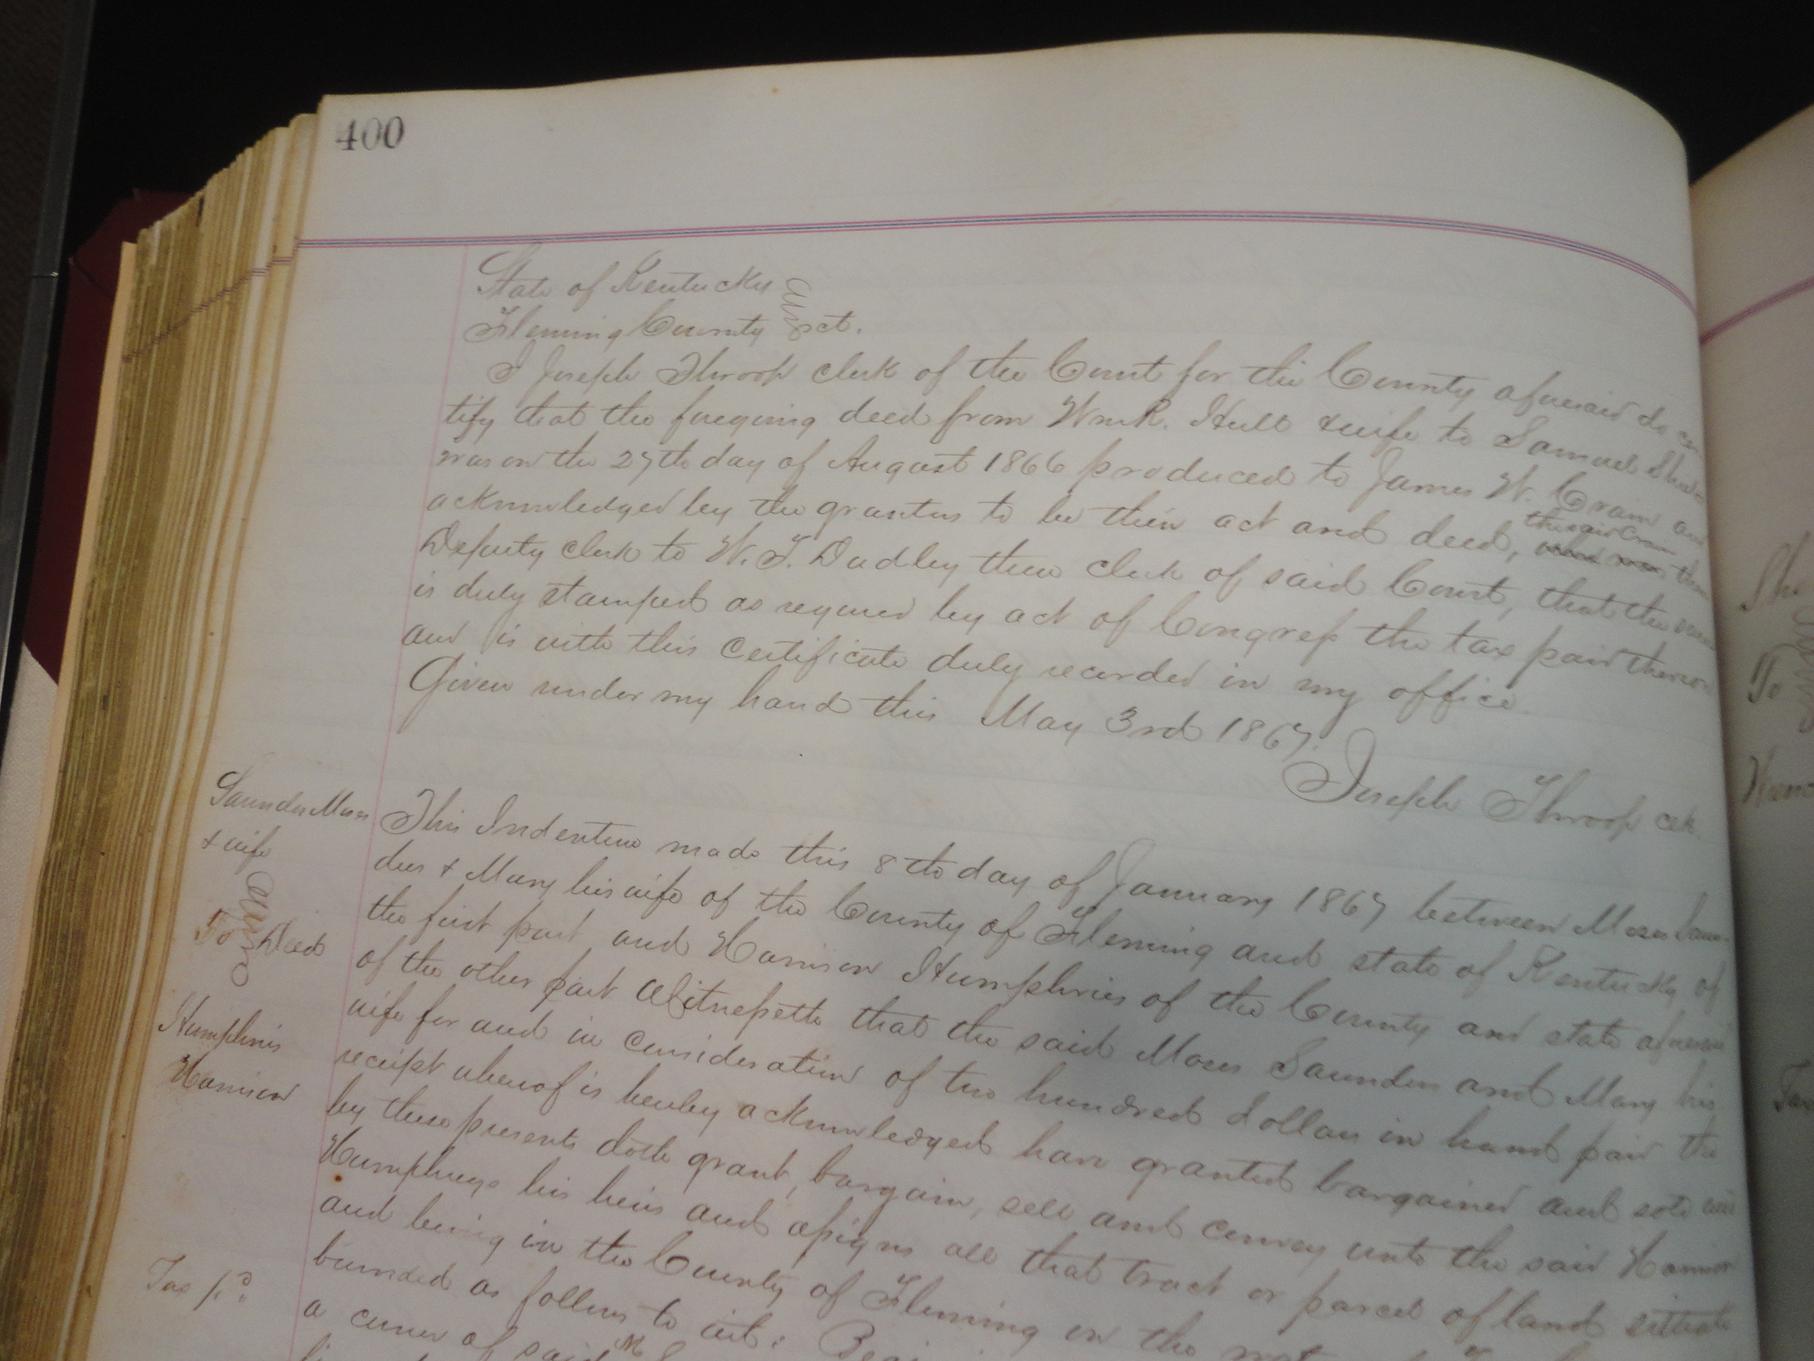 400
State of Kentucky
Fleming County Sct.
I Joseph Throop clerk of the Court for the County aforesaid do cer
tify that the foregoing deed from Wm R. Hull & wife to Samuel
was on the 27th day of August 1866 produced to James W. Crain and
acknowledged by the grantors to be their act and deed, the said Crain then
Deputy clerk to W. T. Dudley then clerk of said Court, that the same
is duly stamped as required by act of Congress the tax paid thereon
and is with this certificate duly recorded in my office.
Given under my hand this May 3rd 1867.
Joseph Throop clk.
Saunders Moses
& wife
To Deed
Humphries
Harrison
Tax pd.
This Indenture made this 8th day of January 1867 between Moses Saun-
ders & Mary his wife of the County of Fleming and state of Kentucky of
the first part and Harrison Humphries of the County and state aforesaid
of the other part Witnesseth that the said Moses Saunders and Mary his
wife for and in consideration of two hundred dollars in hand paid the
receipt whereof is hereby acknowledged have granted bargained and sold and
by these presents doth grant, bargain, sell and convey unto the said Harrison
Humphreys his heirs and assigns all that tract or parcel of land situate
and being in the County of Fleming on the
bounded as follows to wit: 
a corner of said